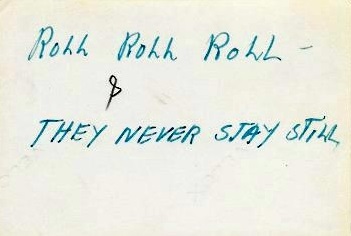 ROLL ROLL ROLL –
&
THEY NEVER STAY STILL